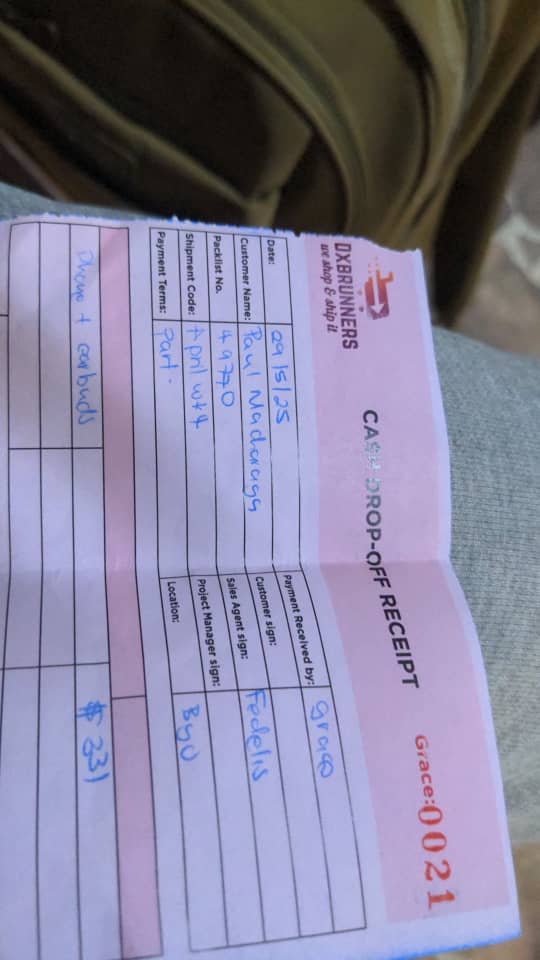 DXBRUNNERS
we shop & ship it
CASH DROP-OFF RECEIPT
Grace: 0021
Date: 29/5/25
Customer Name: Paul Madaraga
Packlist No. 49770
Shipment Code: April wk4
Payment Terms: Part.
Payment Received by: Grace
Customer sign:
Sales Agent sign: Fedelis
Project Manager sign:
Location: Byo
Phone + earbuds $331